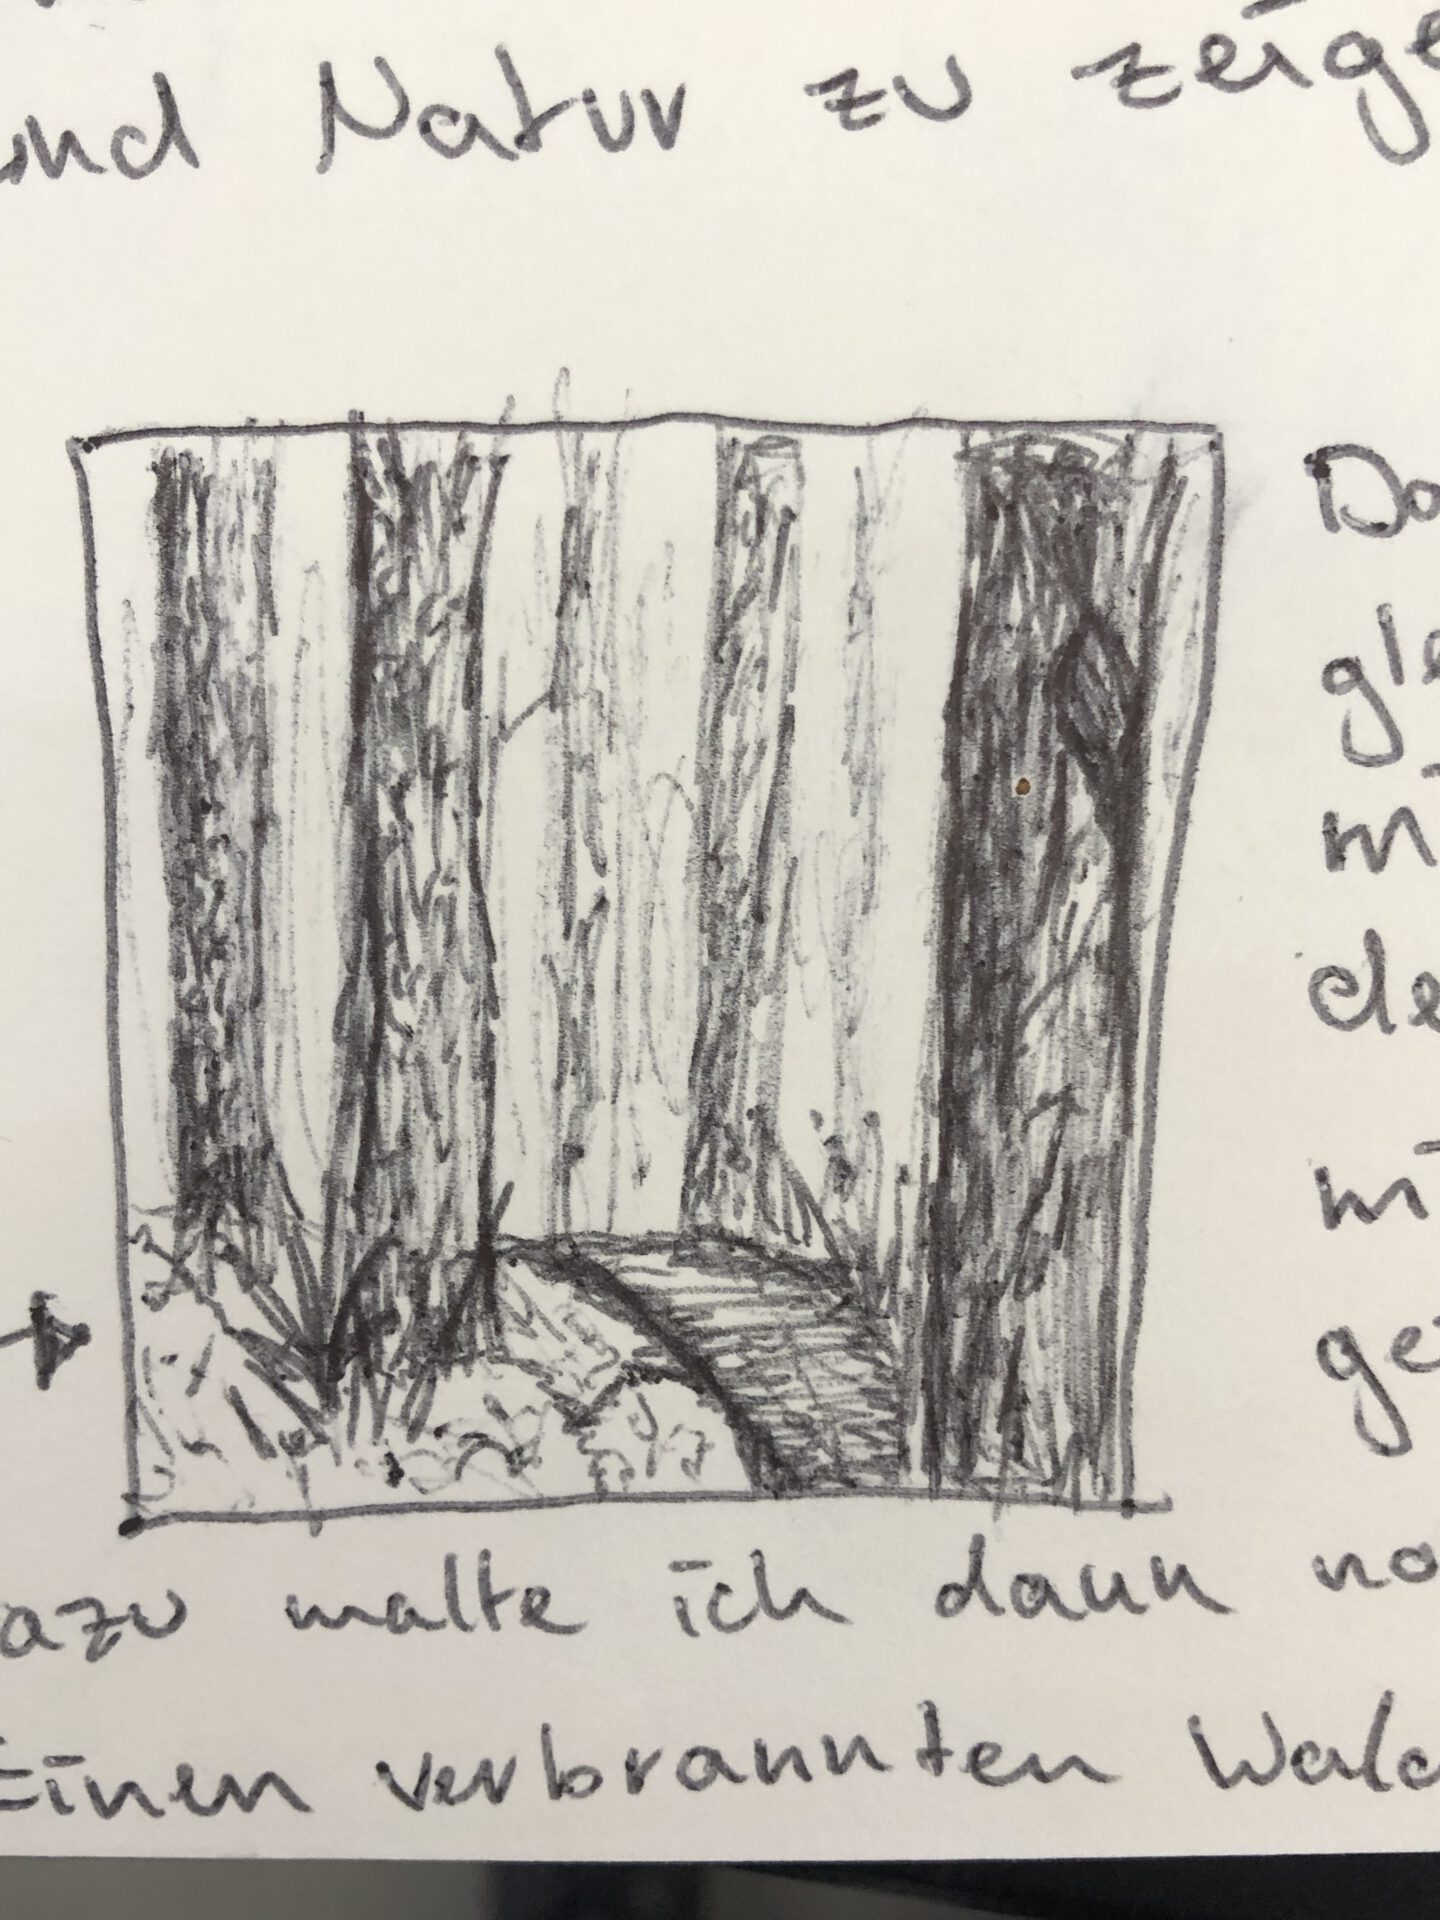 und Natur zu zeige
Da
gle
mi
de
mi
ge
azu malte ich dann no
Einen verbrannten Wald